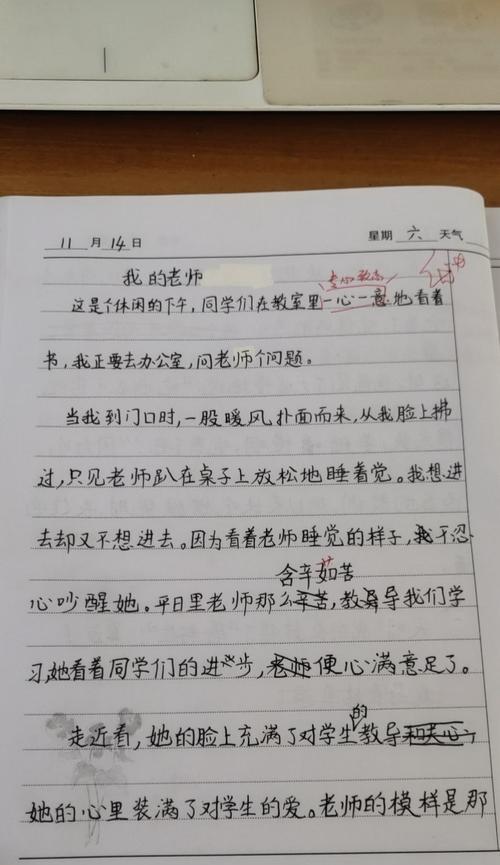 11月14日 星期六 天气
我的老师
专心致志
这是个休闲的下午,同学们在教室里一心一意地看着
书,我正要去办公室,问老师个问题。
当我到门口时,一股暖风扑面而来,从我脸上拂
过,只见老师趴在桌子上放松地睡着觉。我想进
去却又不想进去。因为看着老师睡觉的样子,我不忍
含辛茹苦
心吵醒她。平日里老师那么辛苦,教导我们学
习,她看着同学们的进步,老师便心满意足了。
的
走近看,她的脸上充满了对学生教导和关心,
她的心里装满了对学生的爱。老师的模样是那